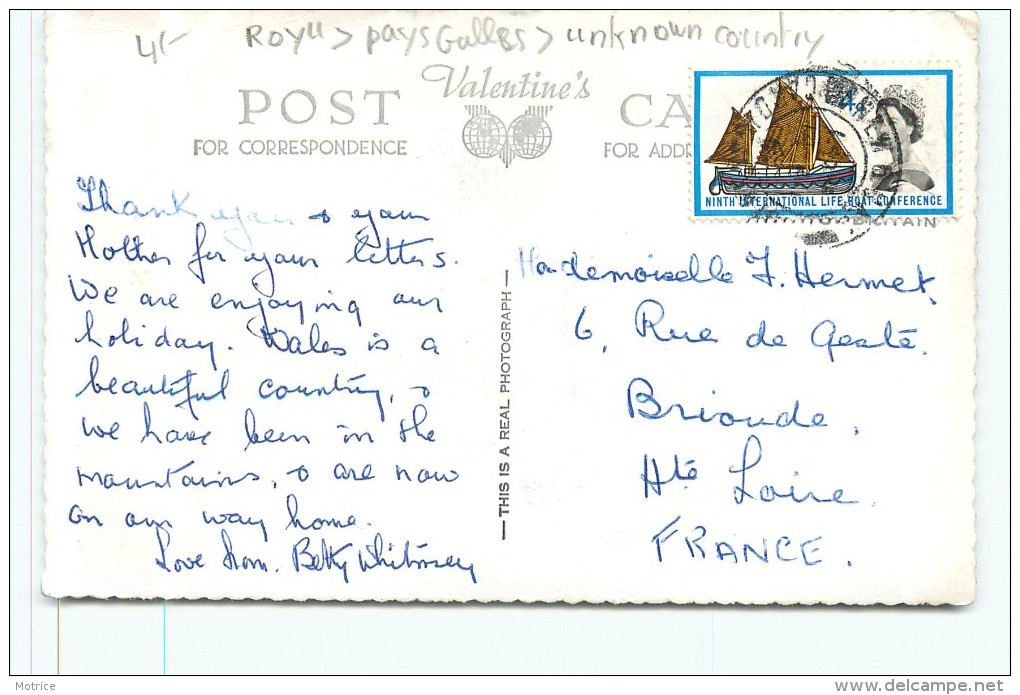 4/-
ROYU > pays Galles > unknown country
Valentine's
POST CA
FOR CORRESPONDENCE
FOR ADDR
4d
NINTH INTERNATIONAL LIFE-BOAT CONFERENCE
Thank you & your
Mother for your letters.
We are enjoying our
holiday. Wales is a
beautiful country, &
we have been in the
mountains, & are now
on our way home.
Love from Betty
— THIS IS A REAL PHOTOGRAPH —
Mademoiselle J. Hermet.
6, Rue de
Brioude,
Hte Loire.
FRANCE.
Motrice
delcampe.net